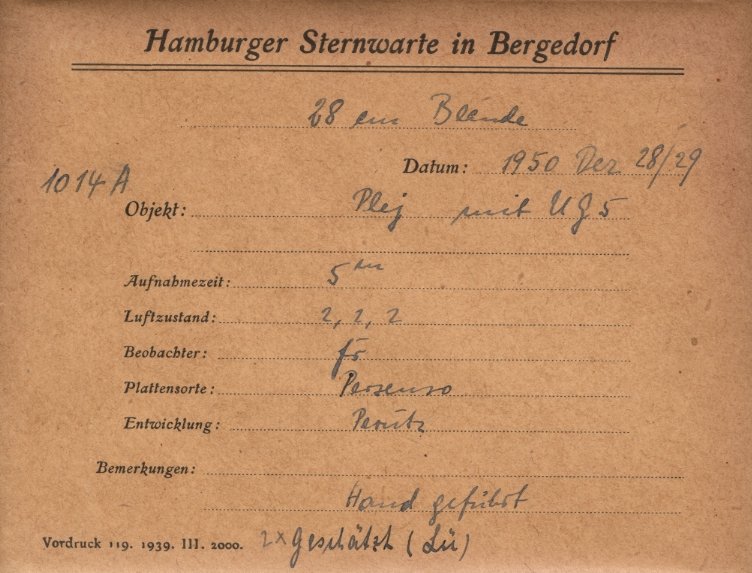 Hamburger Sternwarte in Bergedorf
28 cm Blende
Datum: 1950 Dez 28/29
1014 A
Objekt: Plej mit UG 5
Aufnahmezeit: 5 m
Luftzustand: 2, 2, 2
Beobachter:
Plattensorte: Persenso
Entwicklung: Perutz
Bemerkungen:
Hand geführt
Vordruck 119. 1939. III. 2000. 2x Geschätzt (Lü)